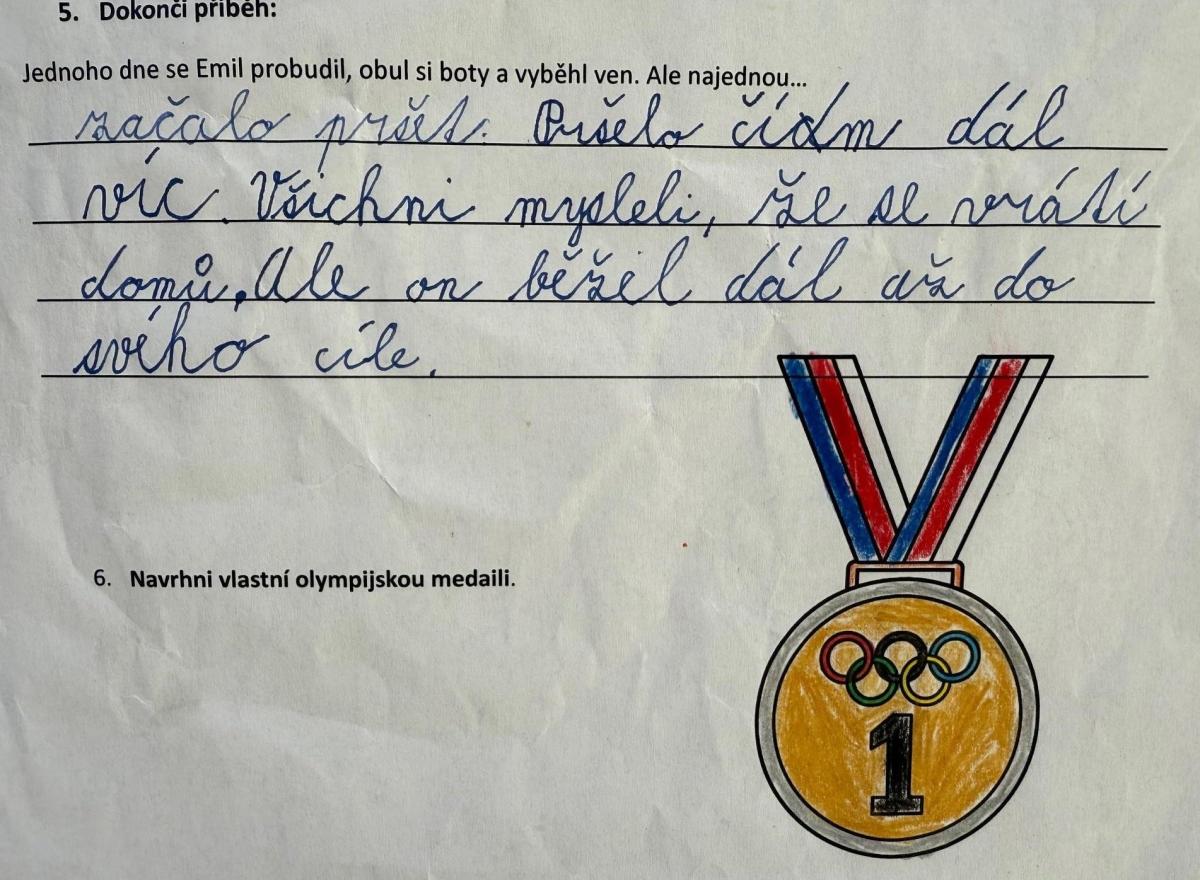 5. Dokonči příběh:
Jednoho dne se Emil probudil, obul si boty a vyběhl ven. Ale najednou...
začalo pršet. Pršelo čídm dál
víc. Všichni mysleli, že se vrátí
domů, Ale on běžel dál až do
svého cíle.
6. Navrhni vlastní olympijskou medaili.
1